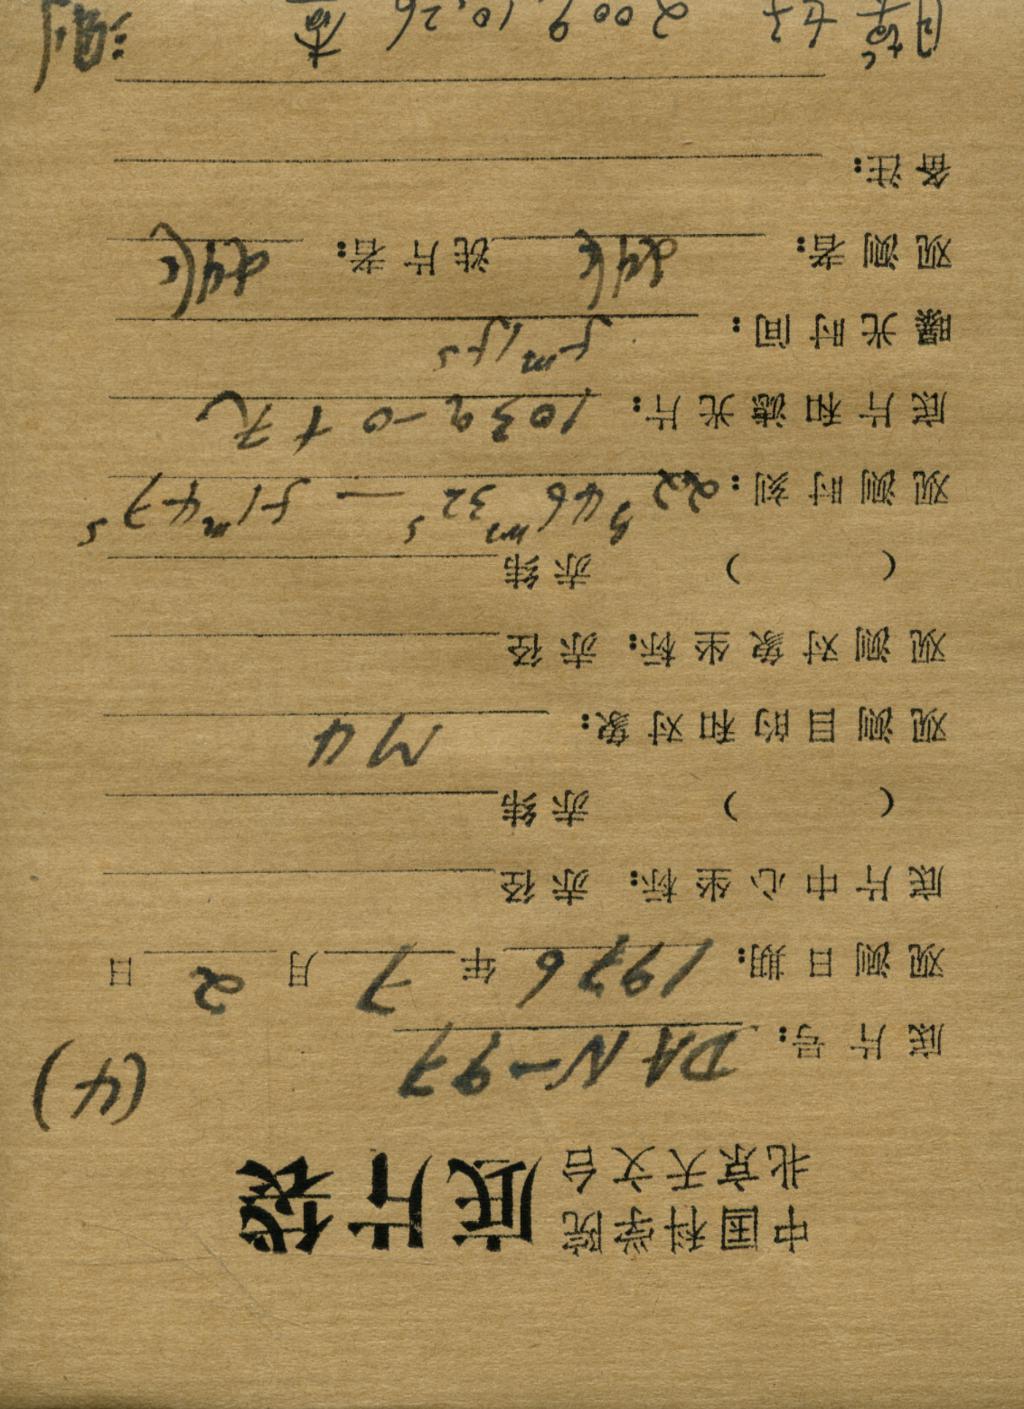 中国科学院
北京天文台 底片袋
(4)
底片号: DAN-97
观测日期: 1976年7月2日
底片中心坐标: 赤径
( ) 赤纬
观测目的和对象: M4
观测对象坐标: 赤径
( ) 赤纬
观测时刻: 22h46m32s — 51m47s
底片和滤光片: 103a-O+无
曝光时间: 5m15s
观测者: 洗片者:
备注:
2009.10.26